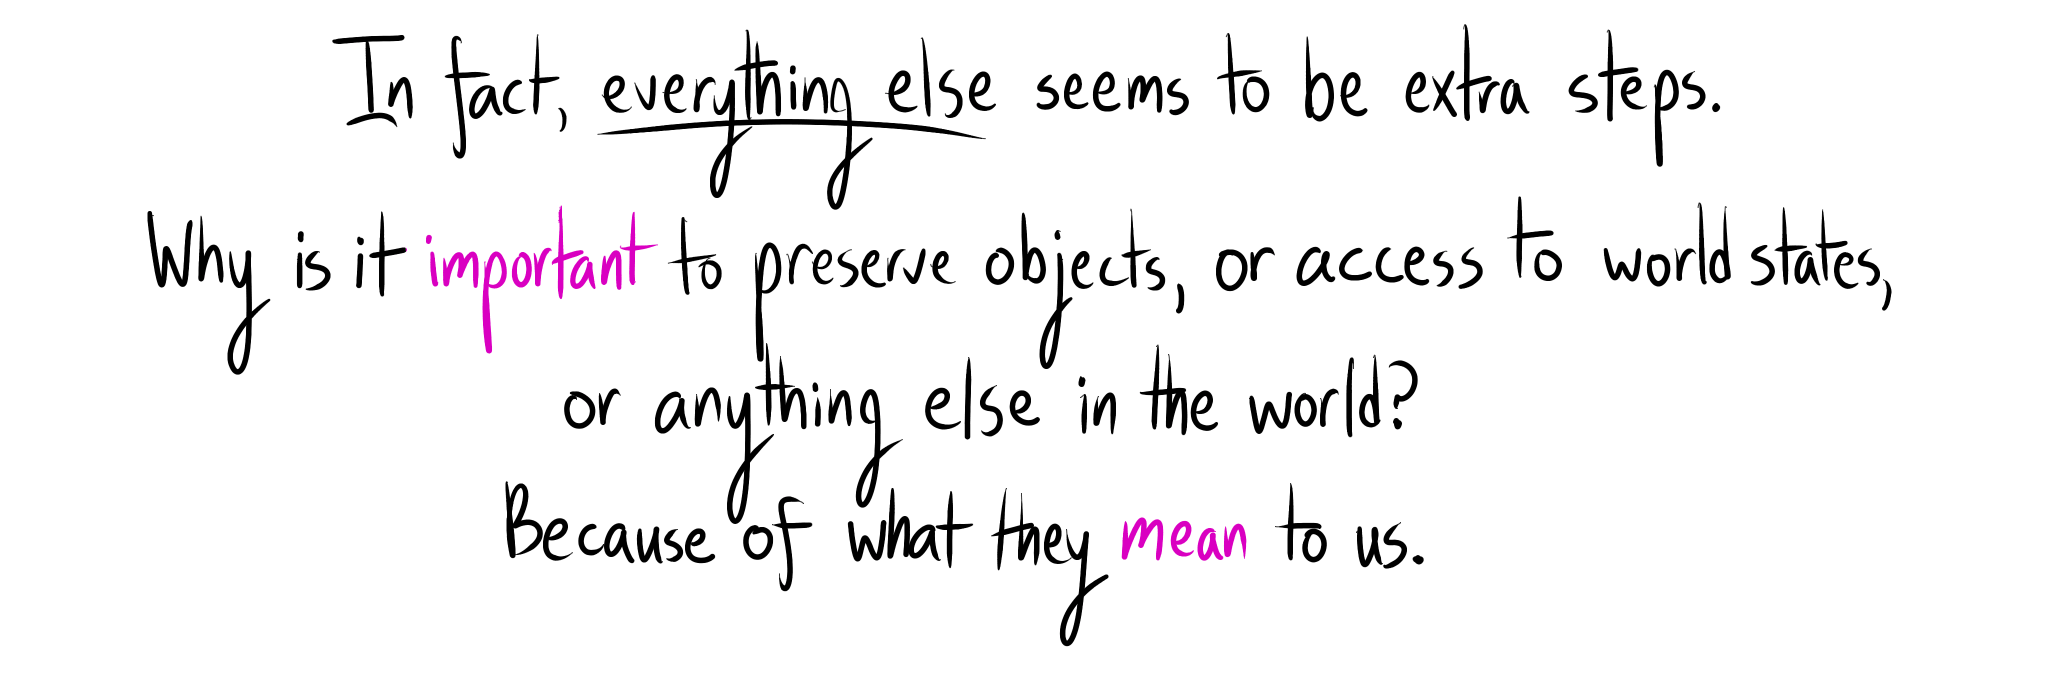 In fact, everything else seems to be extra steps.
Why is it important to preserve objects, or access to world states,
or anything else in the world?
Because of what they mean to us.